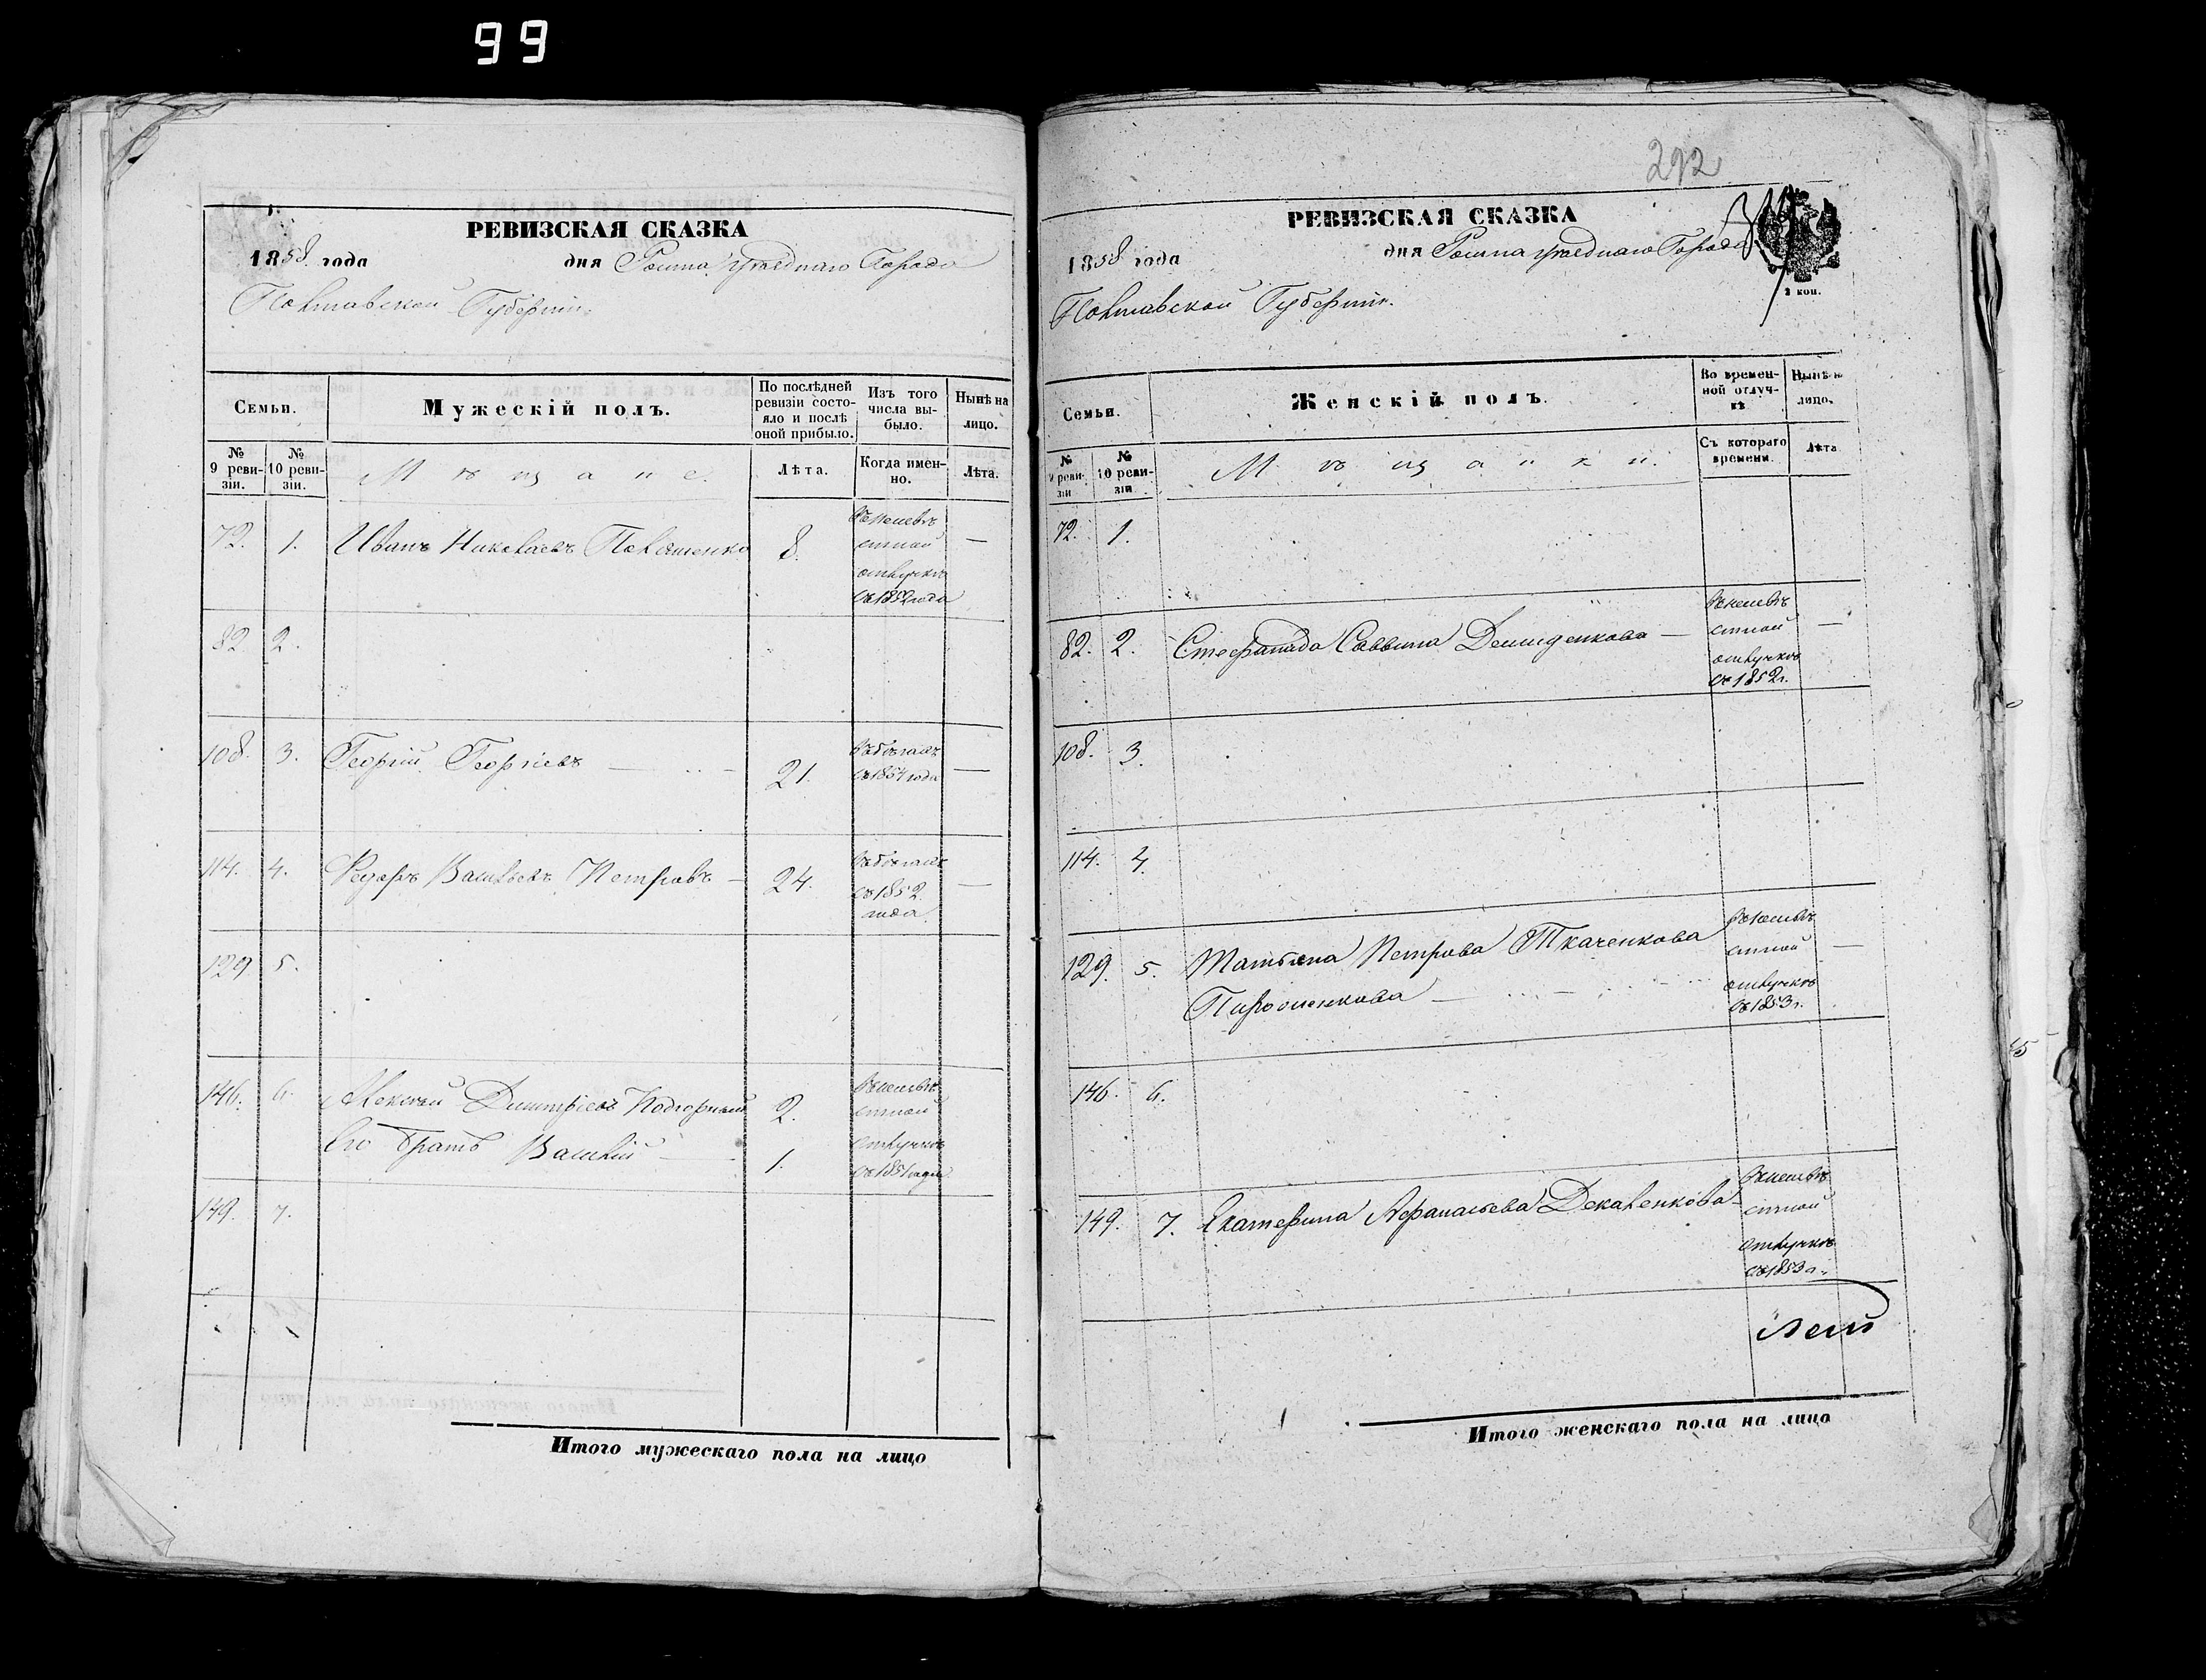 99
РЕВИЗСКАЯ СКАЗКА
1858 года дня Ромна уѣзднаго Города
Полтавской Губерніи.
Семьи.
Мужескій полъ.
По послѣдней ревизіи состояло и послѣ оной прибыло.
Изъ того числа выбыло.
Нынѣ на лицо.
№ 9 ревизіи.
№ 10 ревизіи.
Мѣщане.
Лѣта.
Когда именно.
Лѣта.
72. 1. Иванъ Николаевъ 8. въ безъизвѣстной отлучкѣ съ 1852 года —
82 2.
108. 3. Георгій Георгіевъ — 21. въ бѣгахъ съ 1854 года —
114. 4. Федоръ Васильевъ Петровъ — 24. въ бѣгахъ съ 1852 года —
129 5.
146. 6. Алексѣй Димитріевъ Подгорный 2. въ безъизвѣстной отлучкѣ съ 1851 года
Его братъ Василій — 1.
149. 7.
Итого мужескаго пола на лицо
292
РЕВИЗСКАЯ СКАЗКА
1858 года дня Ромна уѣзднаго Города
Полтавской Губерніи.
2 коп.
Семьи.
Женскій полъ.
Во временной отлучкѣ.
Нынѣ на лицо.
№ 9 ревизіи
№ 10 ревизіи
Мѣщанки.
Съ котораго времени.
Лѣта
72. 1.
82. 2. Стефанида Саввина Демиденкова — въ безъизвѣстной отлучкѣ съ 1852 г. —
108. 3.
114. 4.
129. 5. Татьяна Петрова Ткаченкова въ безъизвѣстной отлучкѣ съ 1853 г. —
146. 6.
149. 7. Екатерина Афанасьева Декаленкова — въ безъизвѣстной отлучкѣ съ 1853 г.
Итого женскаго пола на лицо